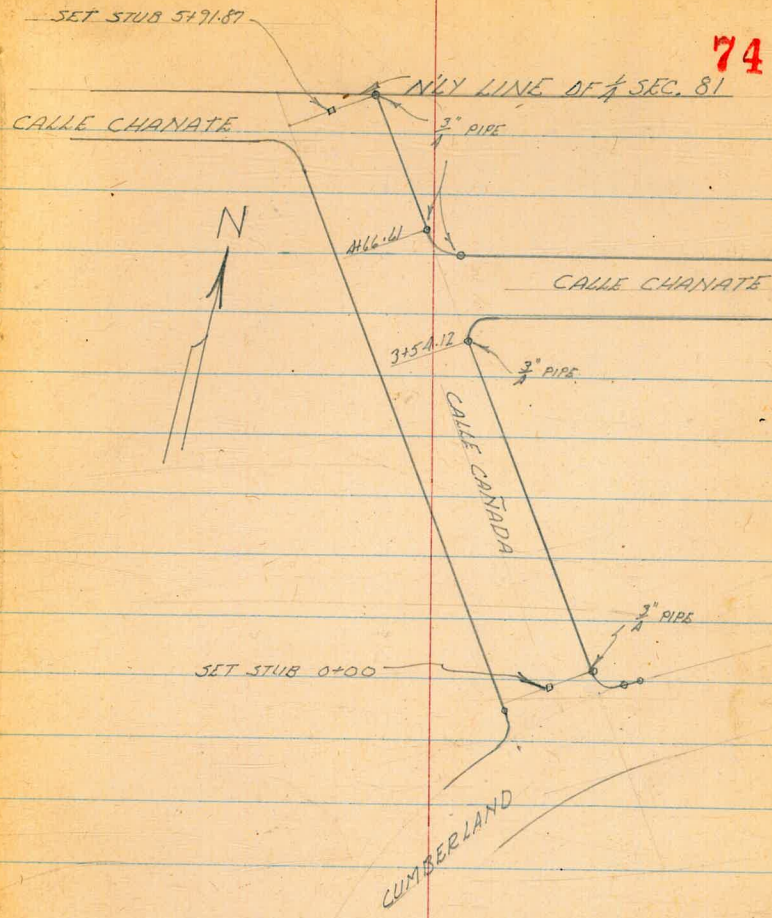 SET STUB 5+91.87
74
N'LY LINE OF 1/4 SEC. 81
CALLE CHANATE
3/4" PIPE
N
4+66.61
CALLE CHANATE
3+54.12
3/4" PIPE
CALLE CAÑADA
3/4" PIPE
SET STUB 0+00
CUMBERLAND